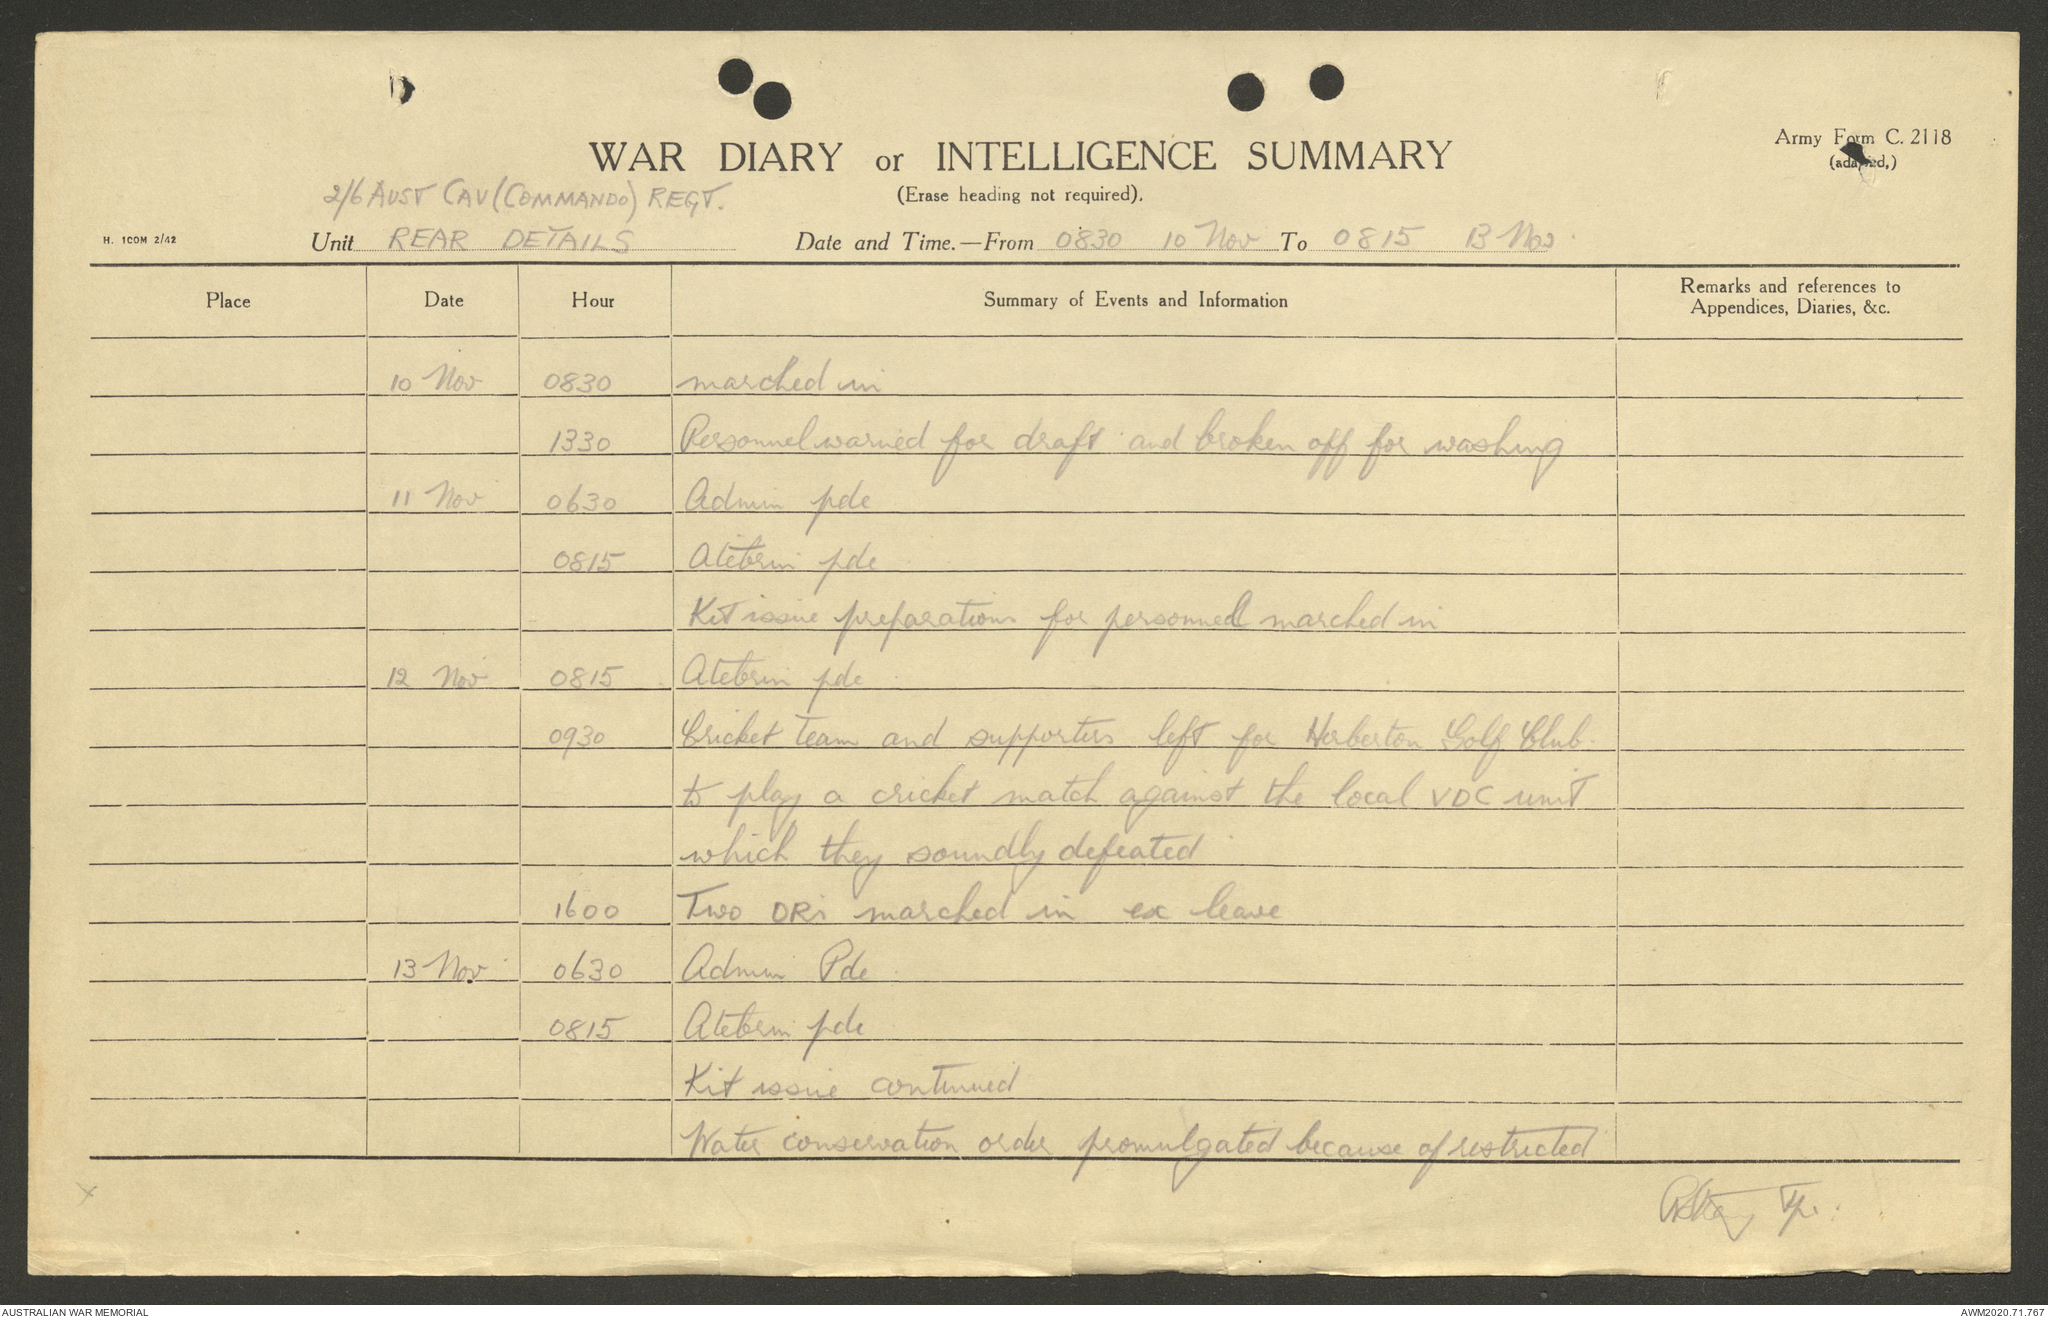 Army Form C. 2118
WAR DIARY or INTELLIGENCE SUMMARY
(adapted,)
2/6 AUST CAV (COMMANDO) REGT.
(Erase heading not required).
H. 100M 2/42
Unit REAR DETAILS Date and Time.—From 0830 10 Nov To 0815 13 Nov
Place Date Hour Summary of Events and Information Remarks and references to
Appendices, Diaries, &c.
10 Nov 0830 marched in
1330 Personnel warned for draft and broken off for washing
11 Nov 0630 Admin pde
0815 Atebrin pde
Kit issue preparations for personnel marched in
12 Nov 0815 Atebrin pde
0930 Cricket team and supporters left for Herberton Golf Club
to play a cricket match against the local VDC unit
which they soundly defeated
1600 Two ORs marched in ex leave
13 Nov 0630 Admin Pde
0815 Atebrin pde
Kit issue continued
Water conservation order promulgated because of restricted
x
Tpr.
AUSTRALIAN WAR MEMORIAL
AWM2020.71.767